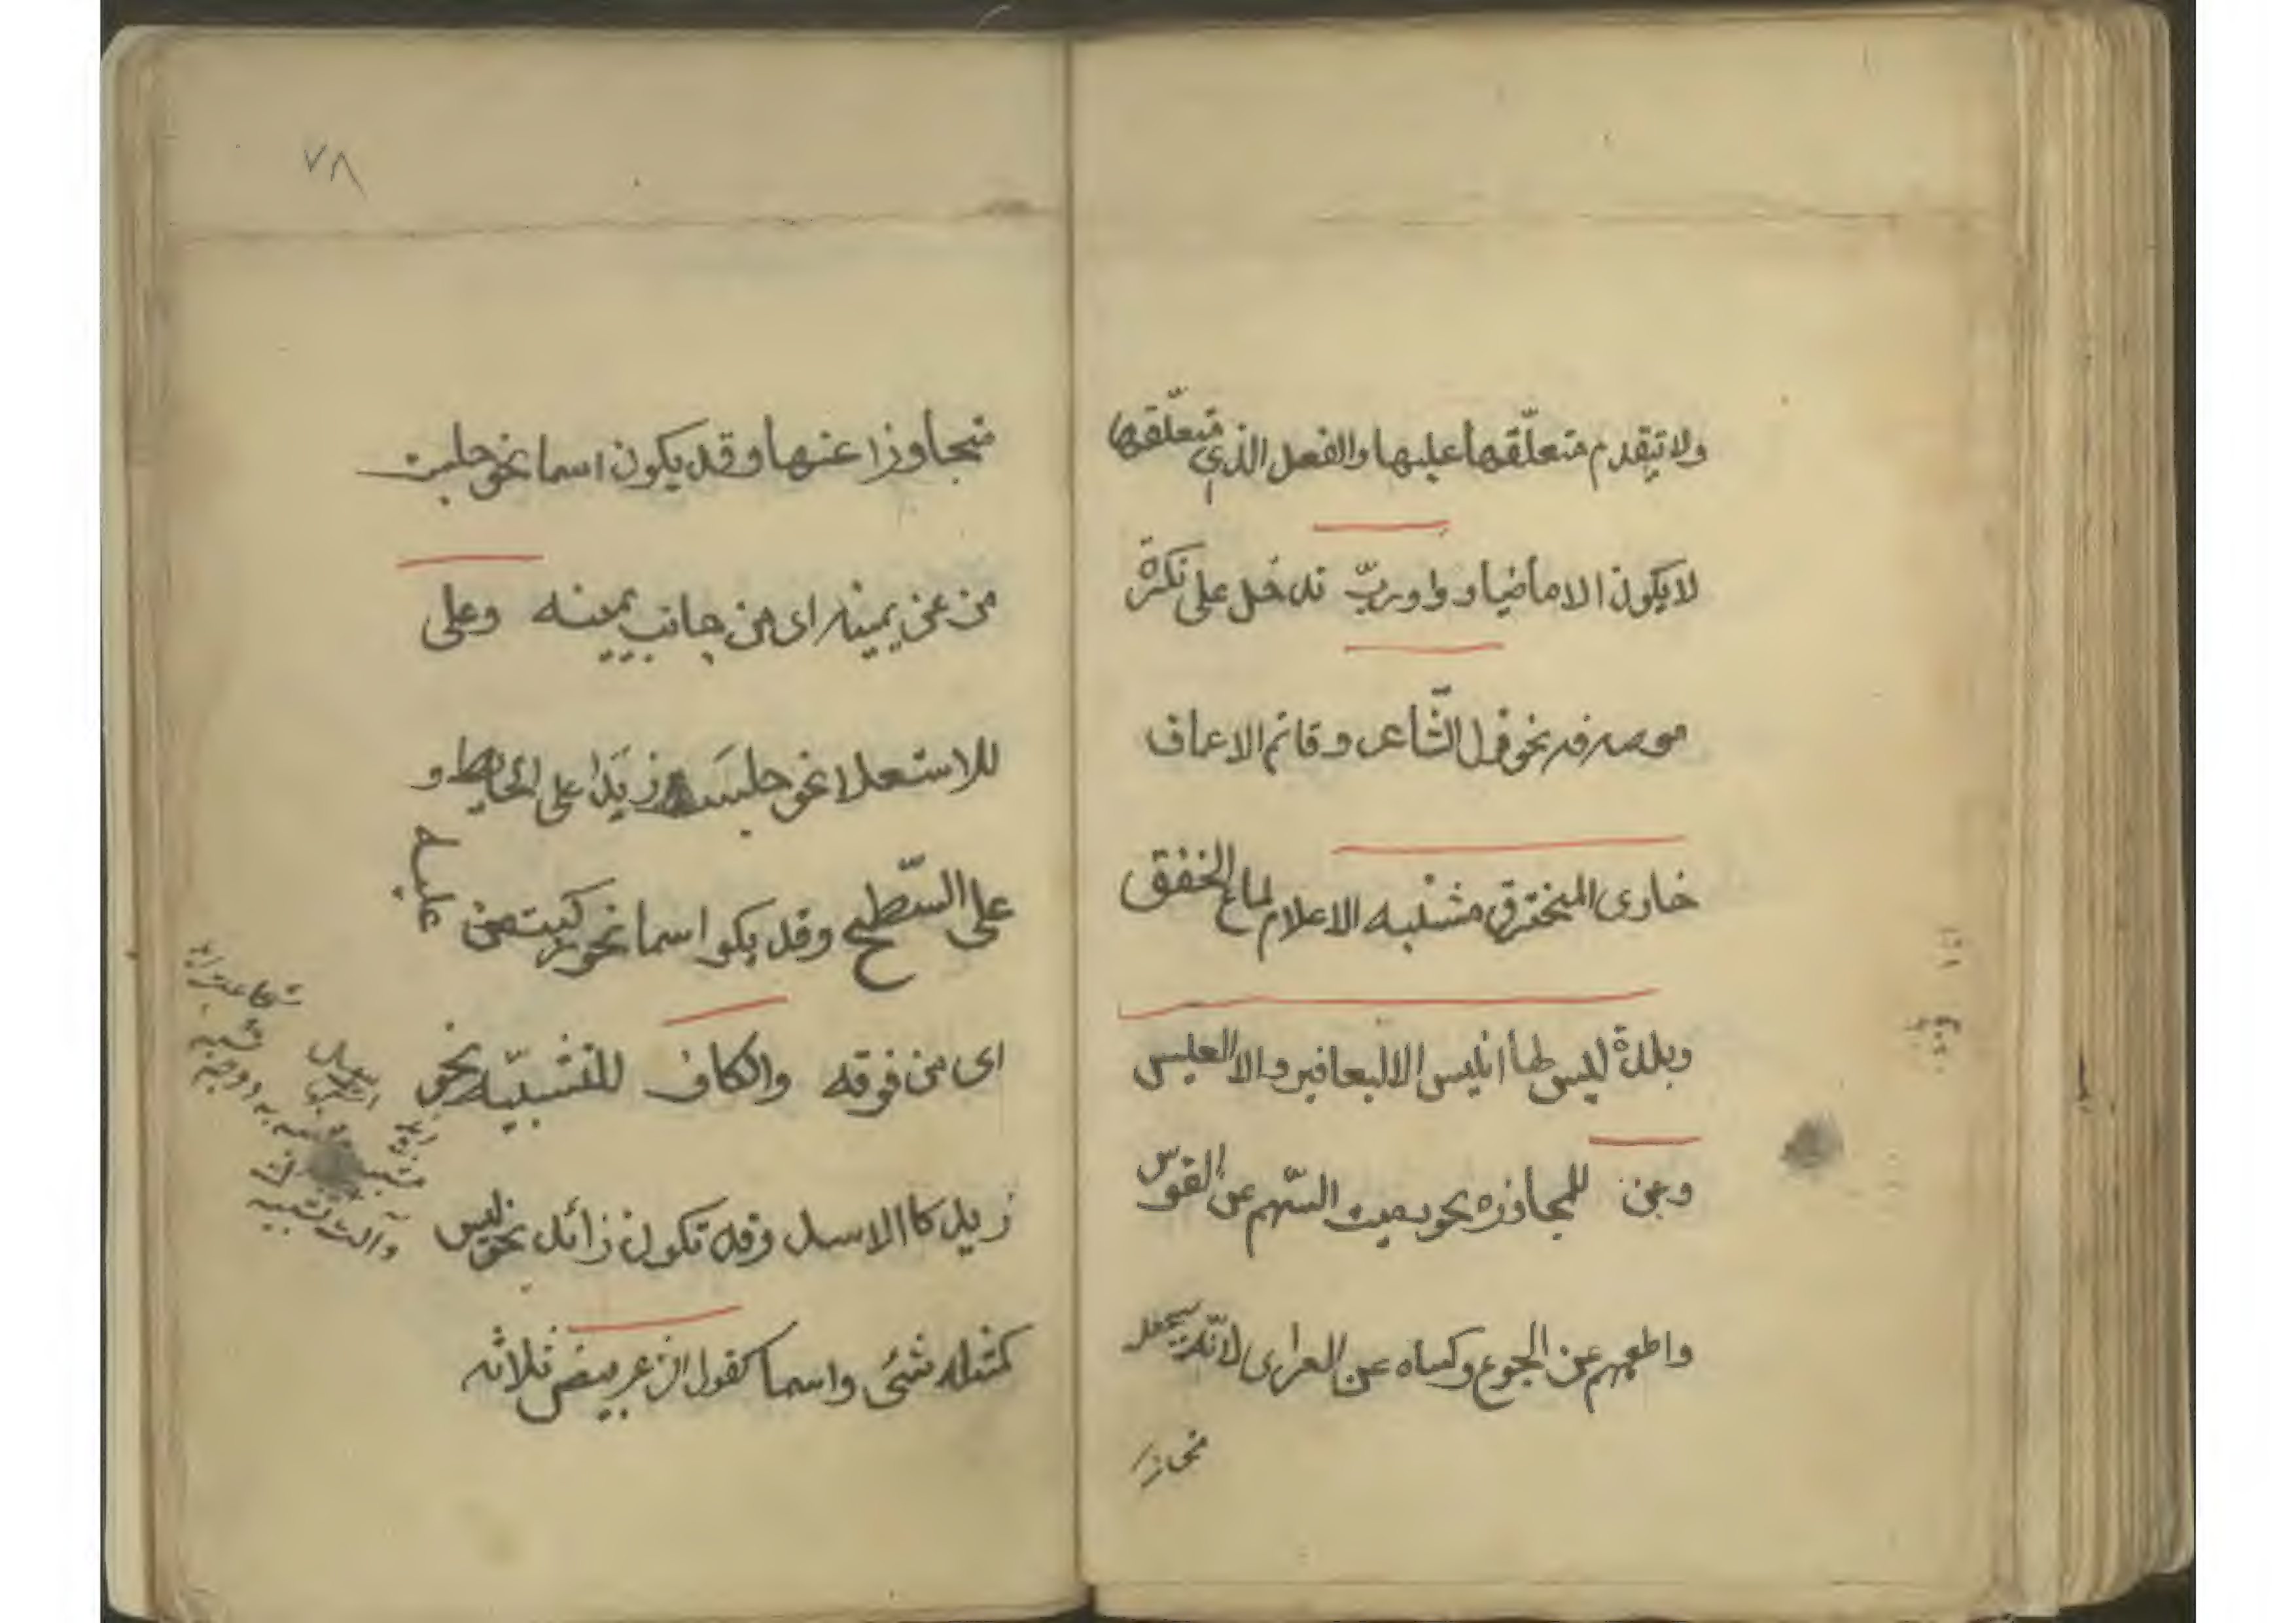 ولا تيقدم متعلّقها عليها والفعل الذي متعلّقها
لا يكون الا ماضيا و واو ربّ تدخل على نكرة
موصوفه نحو قول الشّاعر وقاتم الاعماق
خاوى المخترق مشتبه الاعلام لماع الخفق
وبلدة ليس لها انيس الا اليعافير والا العليس
وعن للمجاوزه نحو رميت السّهم عن القوس
واطعمهم عن الجوع وكساه عن العراى لانّه يجعل
٧٨
متجاوزا عنها وقد يكون اسما نحو جلست
من عن يمينه اى من جانب يمينه وعلى
للاستعلا نحو جلست زيدا على الحايط و
على السّطح وقد يكو اسما نحو ركبت من عليه
اى من فوقه والكاف للتشبيّه نحو
زيد كا الاسد وقد تكون زائد نحو ليس
كمثله شئى واسما كقول ان عن بيض ثلاثه
وآلت تشبيه